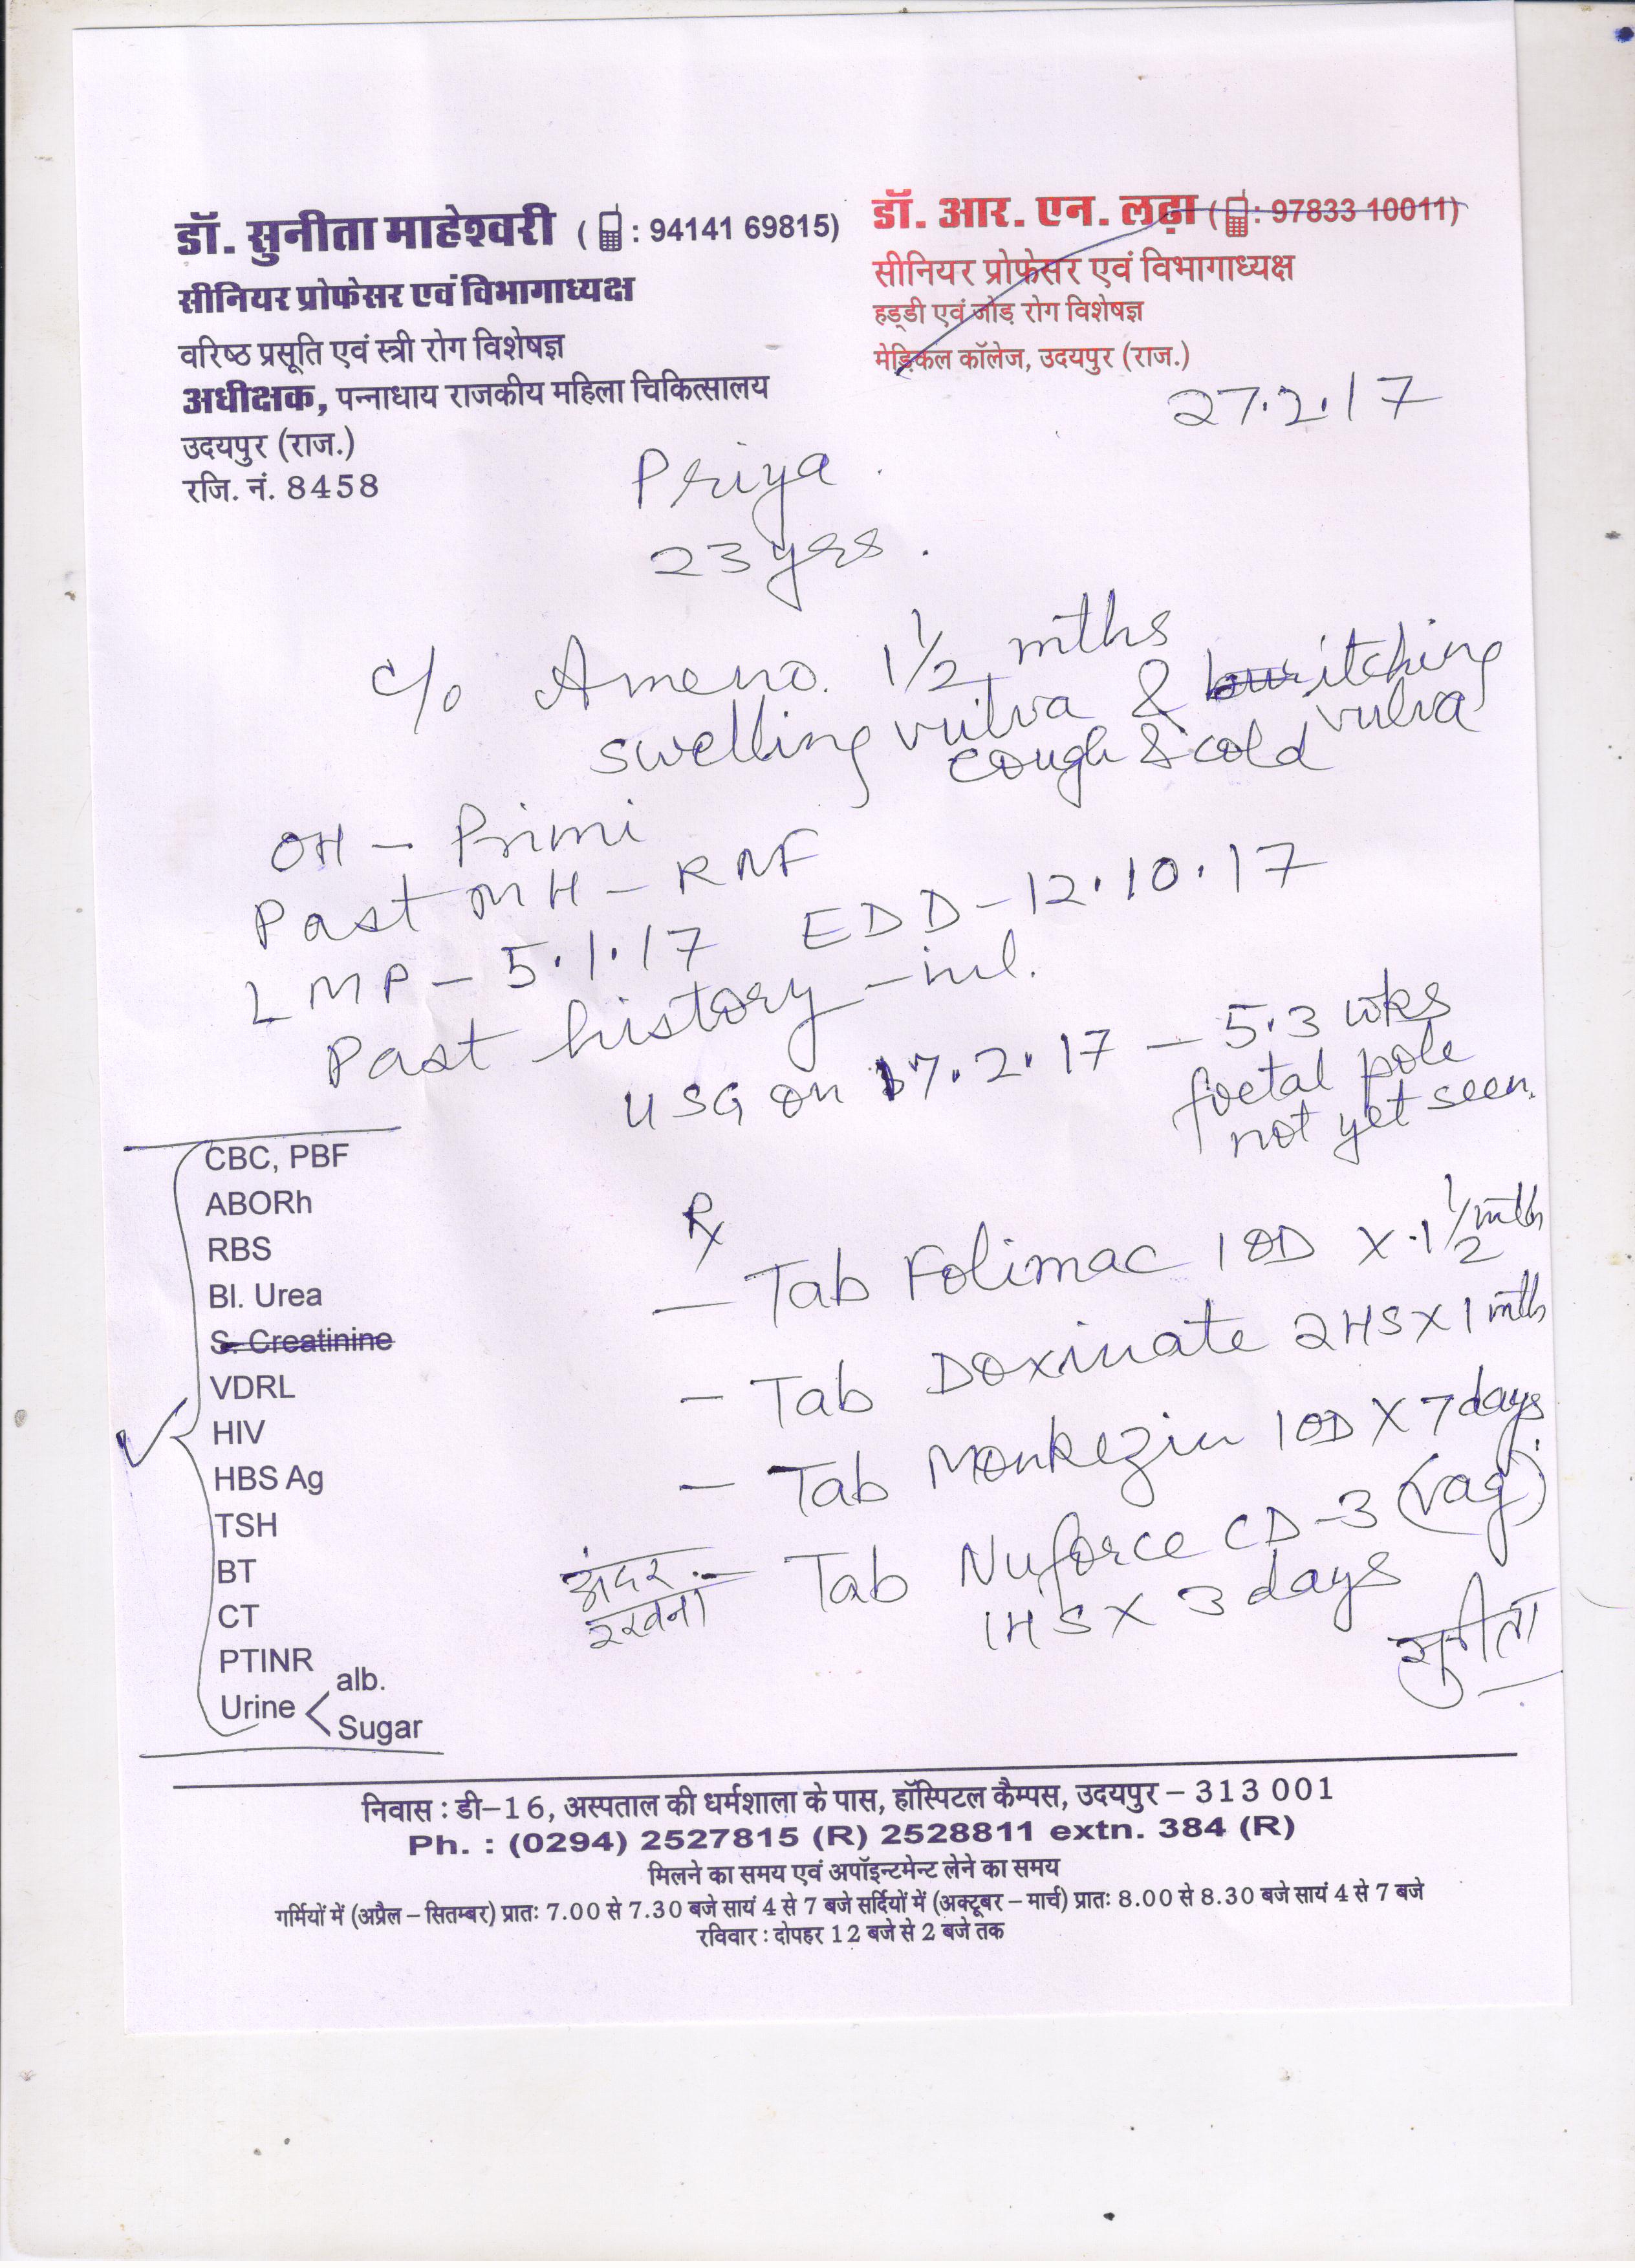 डॉ. सुनीता माहेश्वरी ( : 94141 69815)
सीनियर प्रोफेसर एवं विभागाध्यक्ष
वरिष्ठ प्रसूति एवं स्त्री रोग विशेषज्ञ
अधीक्षक, पन्नाधाय राजकीय महिला चिकित्सालय
उदयपुर (राज.)
रजि. नं. 8458
डॉ. आर. एन. लढ़ा ( : 97833 10011)
सीनियर प्रोफेसर एवं विभागाध्यक्ष
हड्डी एवं जोड़ रोग विशेषज्ञ
मेडिकल कॉलेज, उदयपुर (राज.)
27.2.17
Priya
23 yrs.
c/o Ameno. 1 1/2 mths
swelling vulva & itching vulva
cough & cold
OH - Primi
Past MH - RNF
LMP - 5.1.17 EDD - 12.10.17
Past history - nil.
USG on 17.2.17 - 5.3 wks
foetal pole
not yet seen.
CBC, PBF
ABORh
RBS
Bl. Urea
S. Creatinine
VDRL
HIV
HBS Ag
TSH
BT
CT
PTINR
Urine < alb.
Sugar
Rx
- Tab Folimac 1 OD X 1 1/2 mth
- Tab Doxinate 2 HS X 1 mth
- Tab Monkezin 1 OD X 7 days
अंदर रखना - Tab Nuforce CD-3 (vag)
1 HS X 3 days
सुनीता
निवास : डी-16, अस्पताल की धर्मशाला के पास, हॉस्पिटल कैम्पस, उदयपुर - 313 001
Ph. : (0294) 2527815 (R) 2528811 extn. 384 (R)
मिलने का समय एवं अपॉइन्टमेन्ट लेने का समय
गर्मियों में (अप्रैल - सितम्बर) प्रातः 7.00 से 7.30 बजे सायं 4 से 7 बजे सर्दियों में (अक्टूबर - मार्च) प्रातः 8.00 से 8.30 बजे सायं 4 से 7 बजे
रविवार : दोपहर 12 बजे से 2 बजे तक